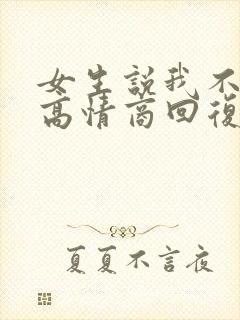 女生説我不
高情商回復
夏夏不言夜